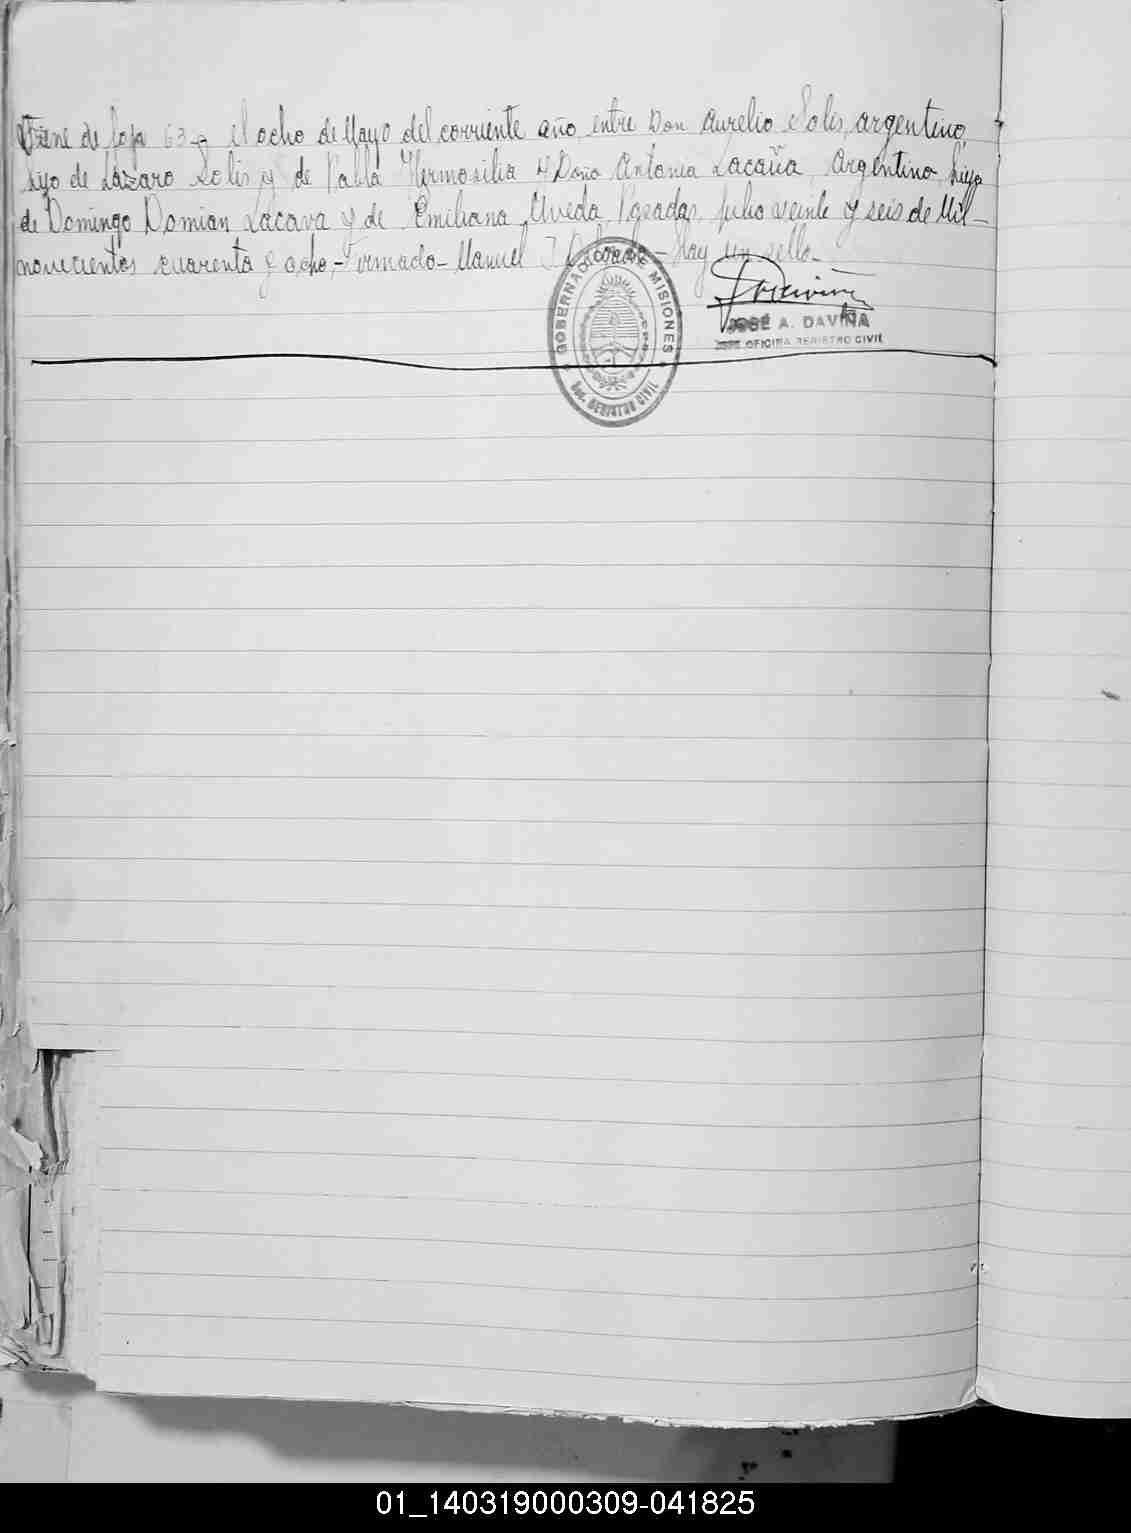 Viene de foja 63 - el ocho de Mayo del corriente año entre Don Aurelio Solis, argentino,
hijo de Lázaro Solis y de Pabla Hermosilia y Doña Antonia Lacava, Argentino hija
de Domingo Domian Lacava y de Emiliana Uveda Posadas, julio veinte y seis de Mil-
novecientos cuarenta y ocho,- Firmado- Manuel J - Hay un sello-
GOBERNACION DE MISIONES
REGISTRO CIVIL
JOSÉ A. DAVIÑA
JEFE OFICINA REGISTRO CIVIL
01_140319000309-041825